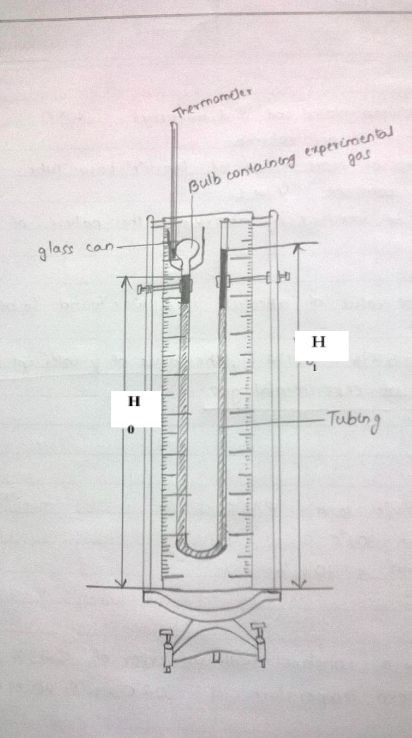 Thermometer
Bulb containing experimental
gas
glass can
H
1
H
0
Tubing